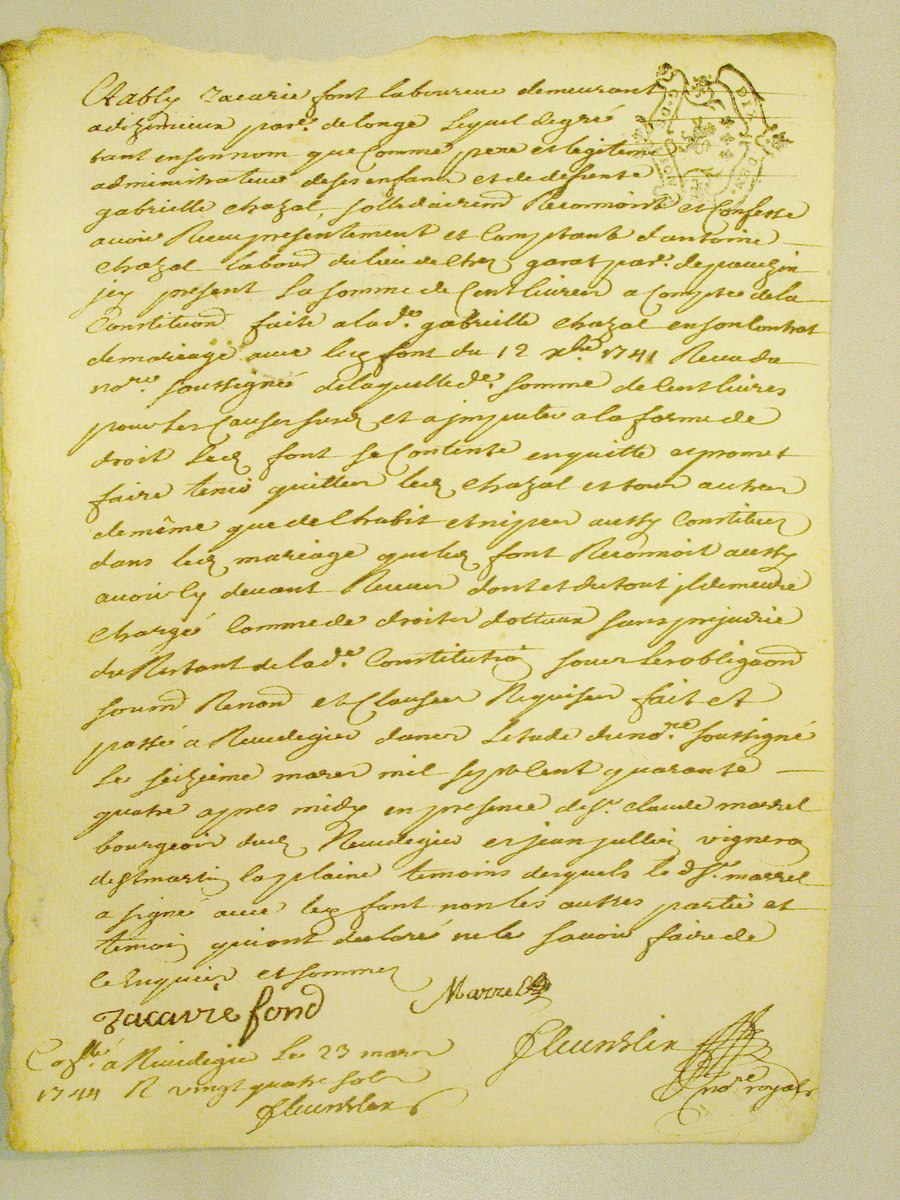 Estably Zacarie font laboureur demeurant
a dizimieux par.e de longe lequel de gré
tant en son nom que comme pere et legitime
administrateur de ses enfans et de defunte
gabrielle chazal, solledairemt Reconnoit et Confesse
avoir Receu presentement et Comptant d'antoine
chazal labour du lieu de chez garat par.e de pavezin
jcy present la somme de Cent livres a Compte de la
Constitution faite a lad.e gabrielle chazal en son Contrat
de mariage avec led font du 12 xbre 1741 Receu du
no.re soussigné de laquelle d.e somme de Cent livres
pour les Causes susd et a jmputer a la forme de
droit led font se Contente en quitte et promet
faire tenir quitter led chazal et tous autres
de même que de l'habit et nipes aussy Constitues
dans led mariage que led font Reconnoit aussy
avoir Cy devant Receus dont et du tout jl demeure
chargé Comme de droits dottaux sans prejudice
du Restant de lad.e Constitution sous les obligaons
soumd Renond et Clauses Requises fait et
passé a Rivedegier dans l'etude du no.re soussigné
le seizieme mars mil sept Cent quarante
quatre apres midy en presence de s.r claude marrel
bourgeois dud Rivedegier et jean jullien vigneron
de st martin la plaine temoins desquels le d. s.r marrel
a signé avec led font non les autres partie et
temoin qui ont declaré ne le savoir faire de
ce Enquis et sommes
Zacarie fond Marrel
Con.llé á Rivedegier le 23 mars
1744 R vingt quatre sols
fleurdelix
fleurdelix
no.re royal